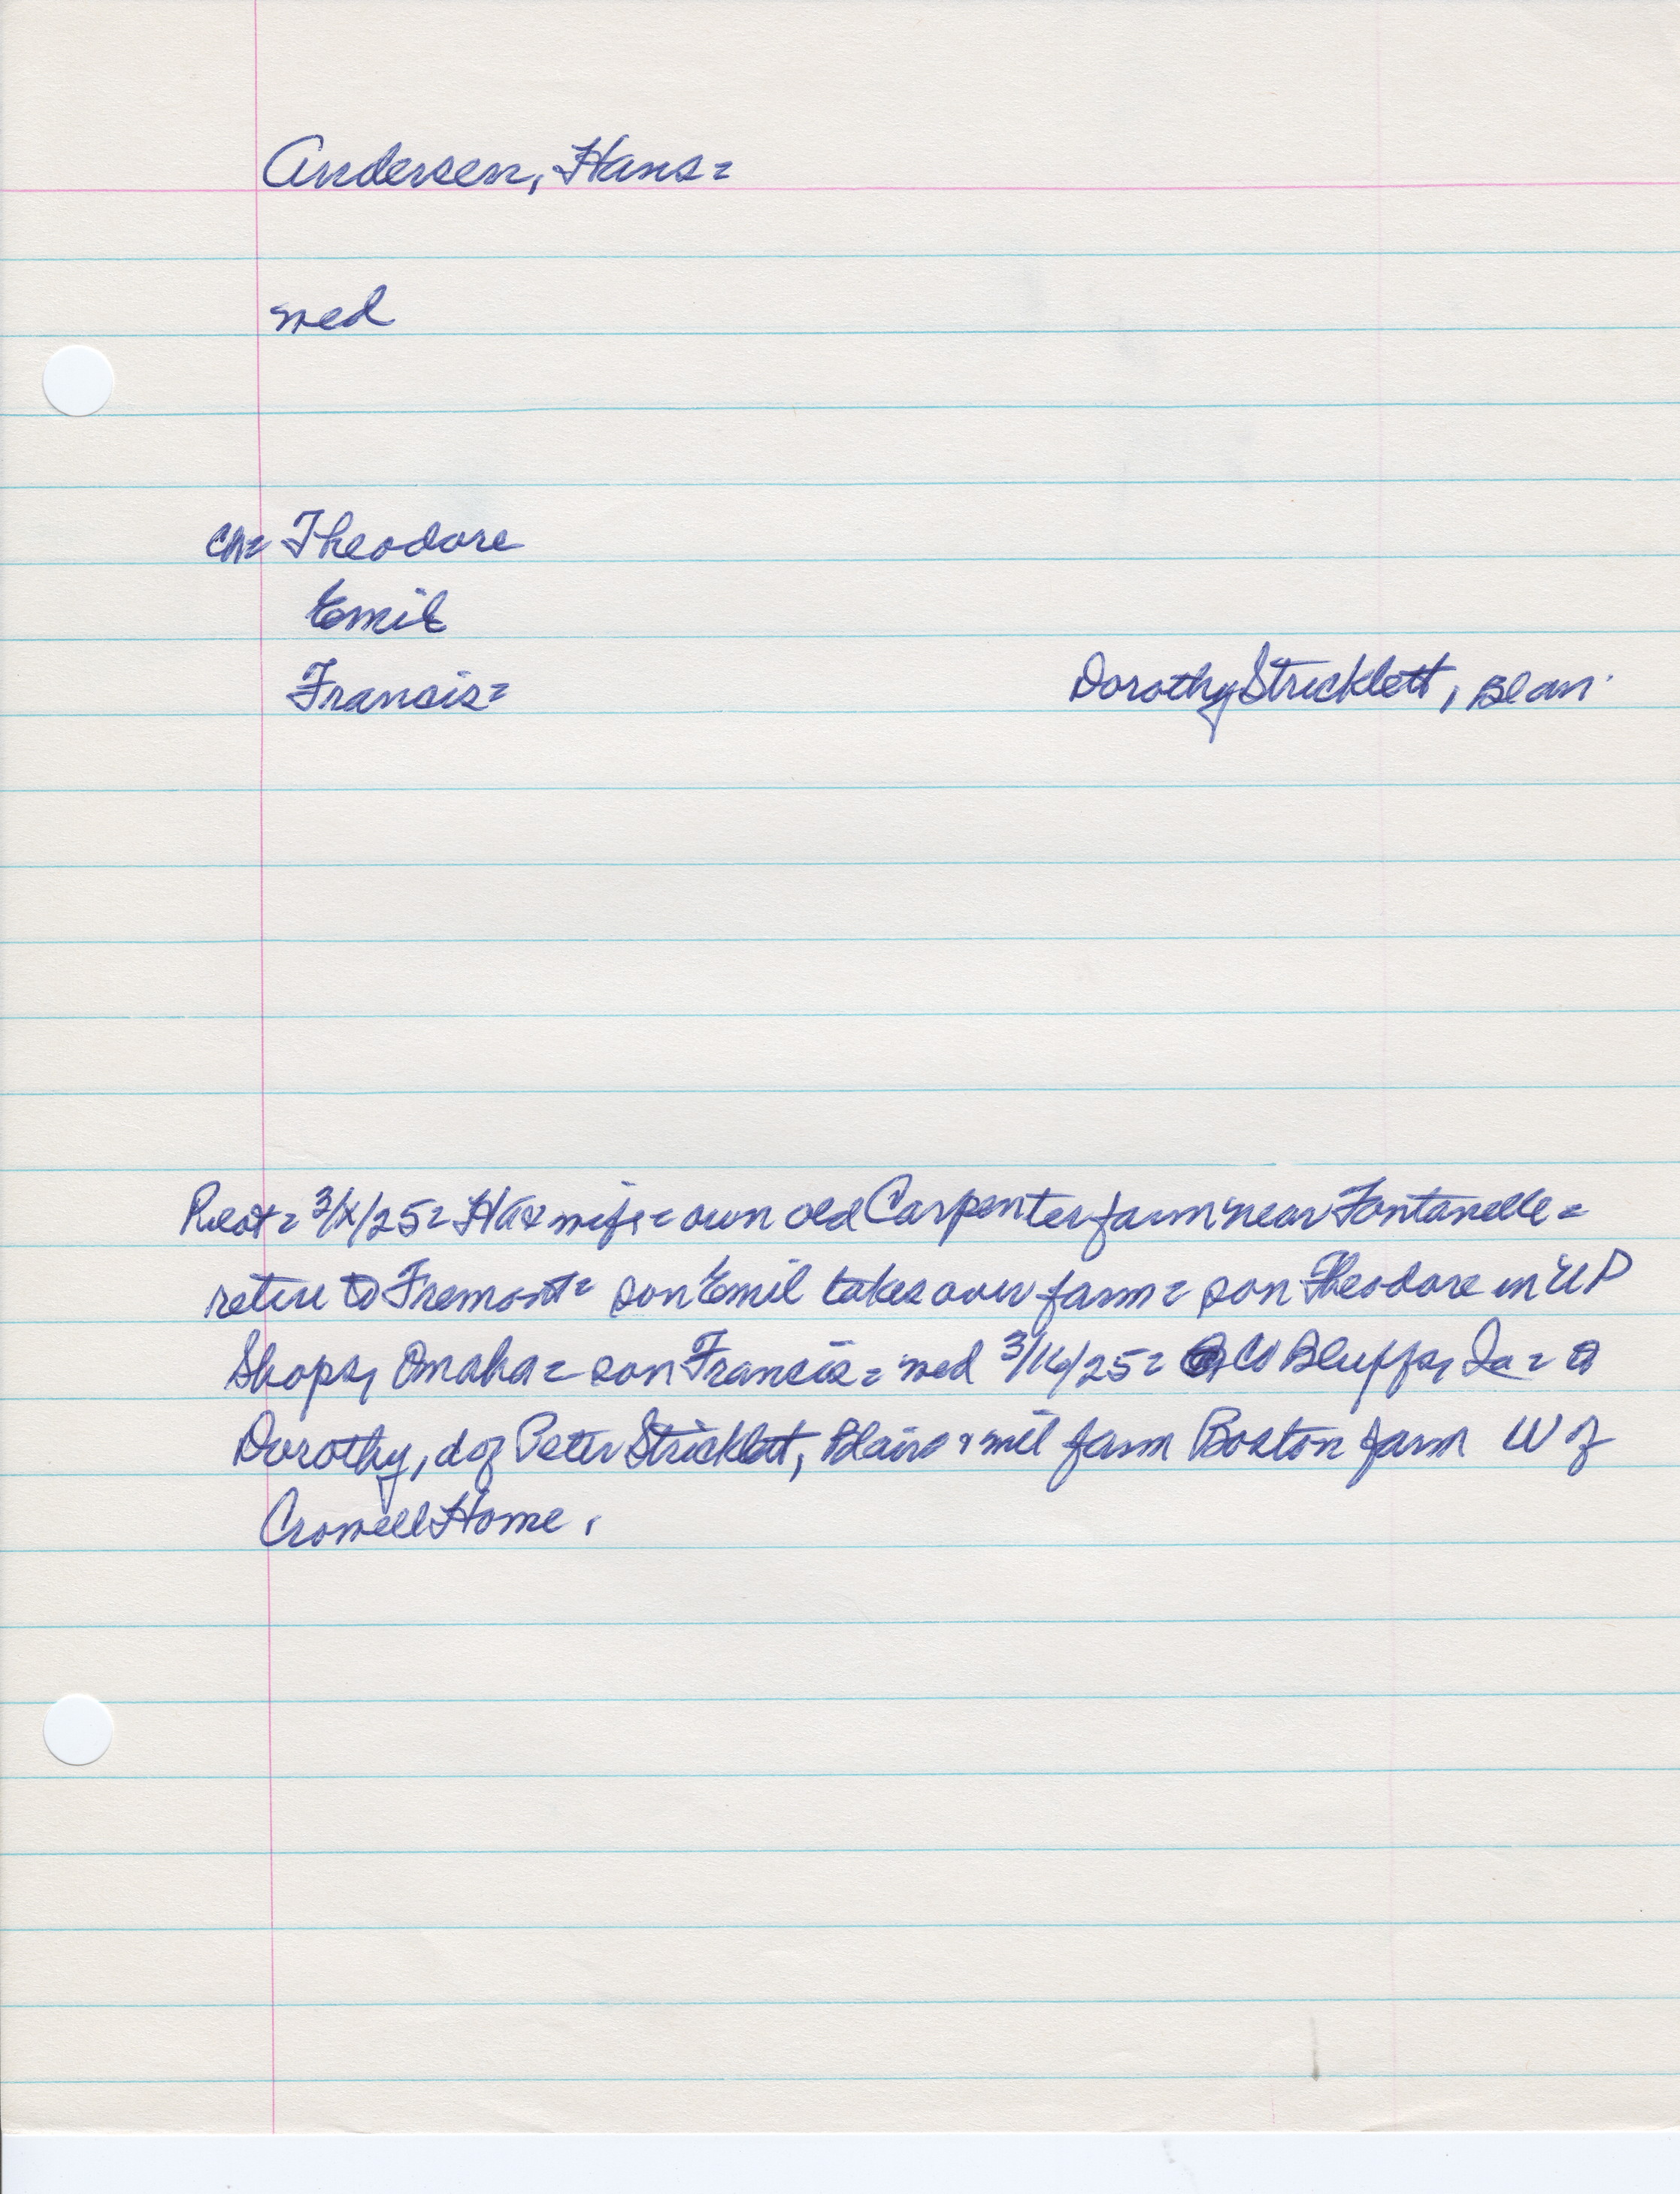 Andersen, Hans=
wed
Ch= Theodore
Emil
Francis= Dorothy Stricklett, Blair
= 3/x/25= HA & wife= own old Carpenter farm near Fontanelle=
retire to Fremont= son Emil takes over farm= son Theodore in UP
Shops, Omaha= son Francis= wed 3/16/25= CO Bluffs, Ia= to
Dorothy, d of Peter Stricklett, Blair= & will farm Boston farm W of
Crowell Home.